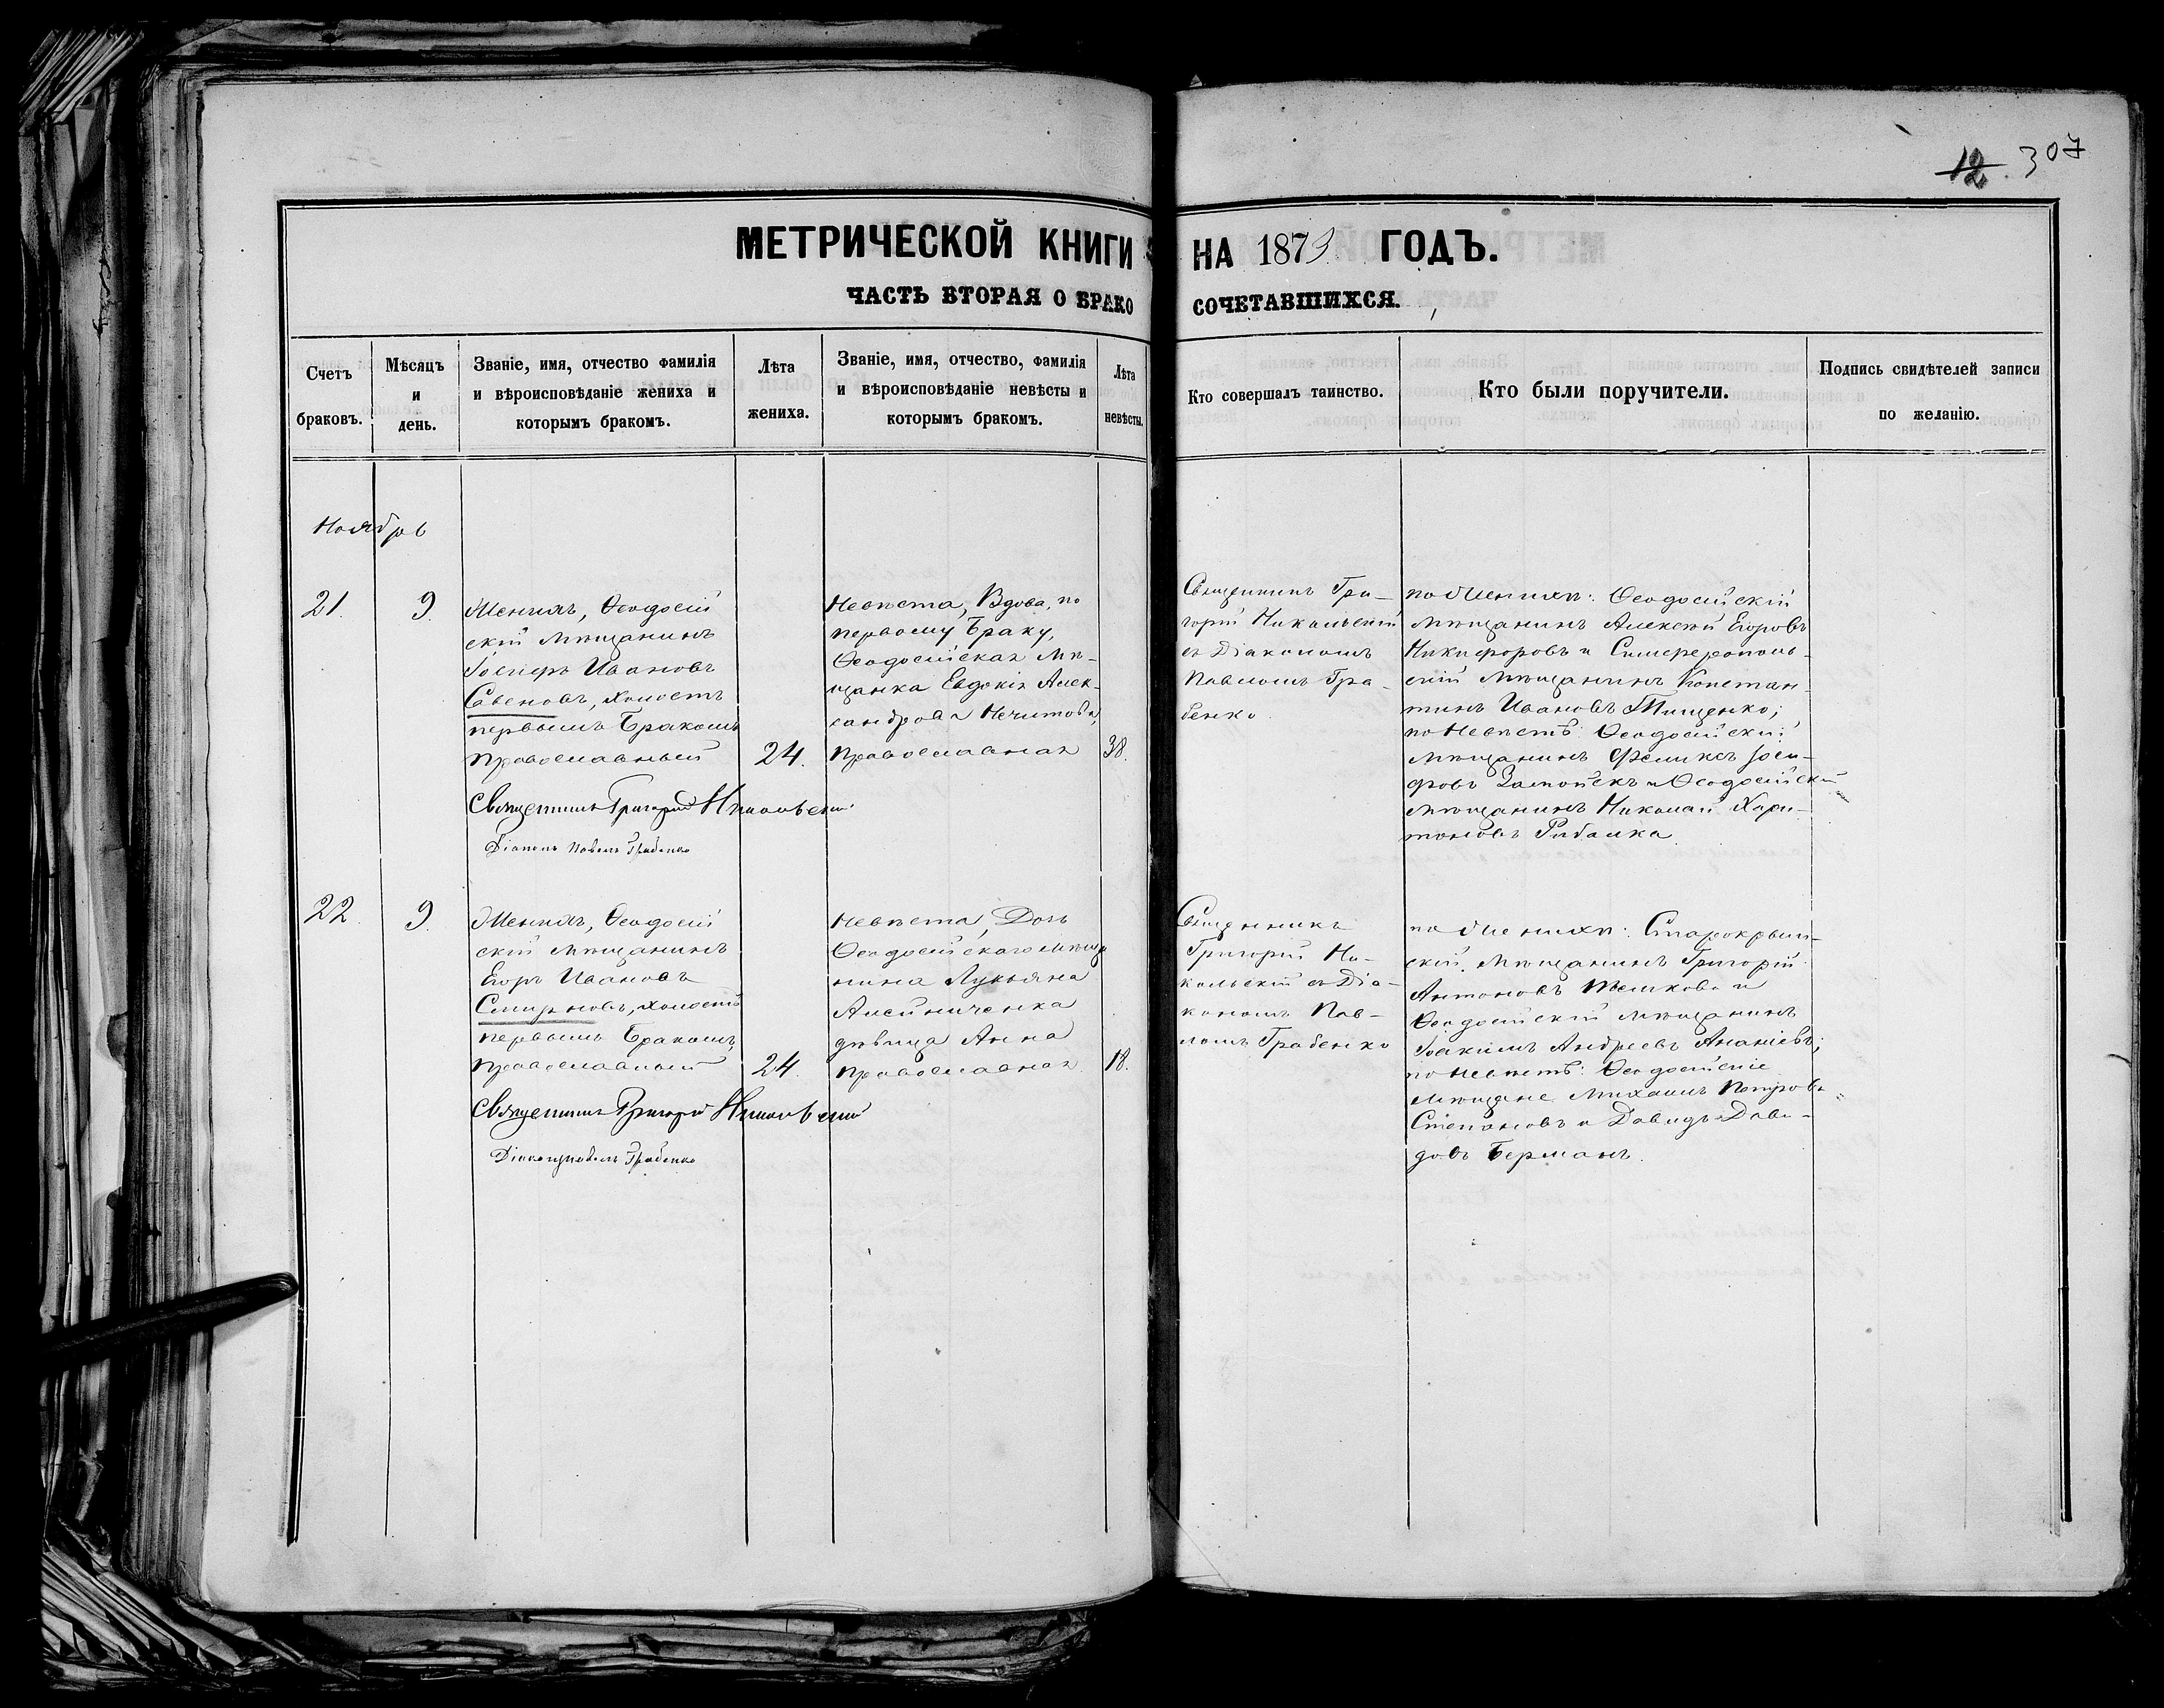 12. 307
МЕТРИЧЕСКОЙ КНИГИ НА 1873 ГОДЪ.
ЧАСТЬ ВТОРАЯ О БРАКОСОЧЕТАВШИХСЯ.
Счетъ браковъ.
Мѣсяцъ и день.
Званіе, имя, отчество фамилія
и вѣроисповѣданіе жениха и
которымъ бракомъ.
Лѣта жениха.
Званіе, имя, отчество, фамилія
и вѣроисповѣданіе невѣсты и
которымъ бракомъ.
Лѣта невѣсты.
Кто совершалъ таинство.
Кто были поручители.
Подпись свидѣтелей записи
по желанію.
Ноябрь
21.
9.
Женихъ, Ѳеодосій
скій мѣщанинъ
Іосифъ Ивановъ
Савеновъ, холостъ
первымъ Бракомъ
православный
24.
Священникъ Григорій Никольскій
Діаконъ Павелъ Грабенко
Невѣста, Вдова, по
первому Браку,
Ѳеодосійская мѣ-
щанка Евдокія Алек-
сандрова Нечитова,
православная
38.
Священникъ Гри-
горій Никольскій
съ Діакономъ
Павломъ Гра-
бенко.
по Женихѣ: Ѳеодосійскій
мѣщанинъ Алексѣй Егоровъ
Никифоровъ и Симферополь-
скій мѣщанинъ Констан-
тинъ Ивановъ Тищенко;
по Невѣстѣ: Ѳеодосійскій
мѣщанинъ Феликсъ Іоси-
фовъ и Ѳеодосійскій
мѣщанинъ Николай Хари-
тоновъ Рибалка.
22.
9.
Женихъ, Ѳеодосій
скій мѣщанинъ
Егоръ Ивановъ
Смирновъ, холостъ
первымъ Бракомъ,
православный
24.
Священникъ Григорій Никольскій
Діаконъ Павелъ Грабенко
Невѣста, Дочь
Ѳеодосійскаго мѣща
нина Лукьяна
Алейниченка
дѣвица Анна
православная.
18.
Священникъ
Григорій Ни-
кольскій съ Діа-
кономъ Пав-
ломъ Грабенко
по Женихѣ: Старокрым-
скій мѣщанинъ Григорій
Антоновъ и
Ѳеодосійскій мѣщанинъ
Іоакимъ Андреевъ Ананіевъ;
по Невѣстѣ: Ѳеодосійскіе
мѣщане Михаилъ Петровъ
Степановъ и Давидъ Дави-
довъ Берманъ.